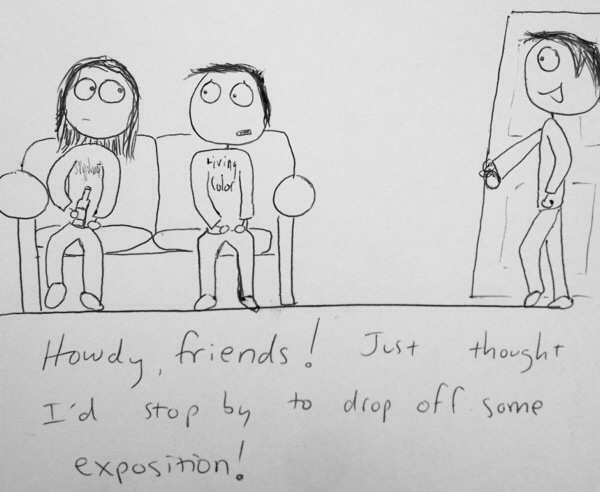 Living
Color
Howdy, friends! Just thought
I'd stop by to drop off some
exposition!